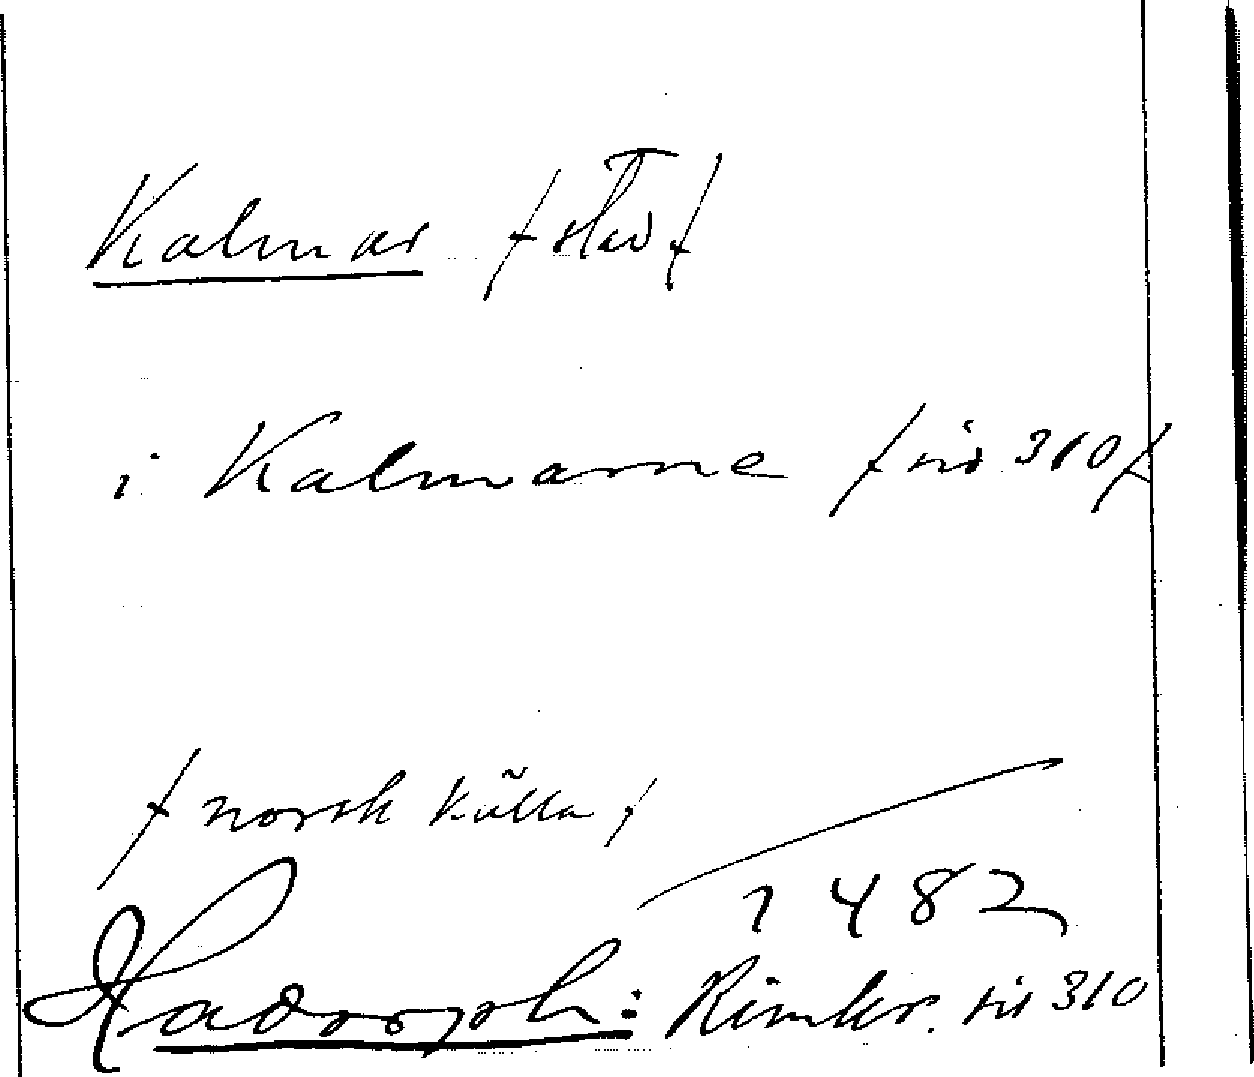 Kalmar /stad/
i Kalmarne /sid 310/
/norsk källa/
1482
Hadorph: Rimkr. sid 310